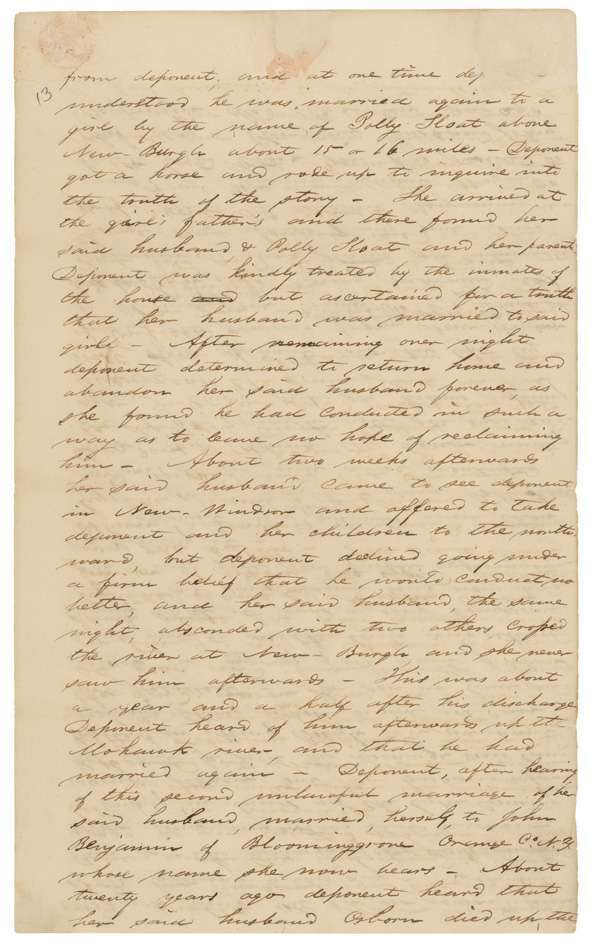 13
from deponent, and at one time dep
understood he was married again to a
girl by the name of Polly Sloat above
New-Burgh about 15 or 16 miles – Deponent
got a horse and rode up to inquire into
the truth of the story – She arrived at
the girl's father's and there found her
said husband, & Polly Sloat and her parents
Deponent was kindly treated by the inmates of
the house and but ascertained for a truth
that her husband was married to said
girl – After remaining over night
deponent determined to return home and
abandon her said husband forever, as
she found he had conducted in such a
way as to leave no hope of reclaiming
him – About two weeks afterwards
her said husband came to see deponent
in New-Windsor and offered to take
deponent and her children to the north
ward, but deponent declined going under
a firm belief that he would conduct no
better, and her said husband, the same
night, absconded with two others, crossed
the river at New-Burgh and she never
saw him afterwards – This was about
a year and a half after his discharge
Deponent heard of him afterwards up the
Mohawk river, and that he had
married again – Deponent, after hearing
of this second unlawful marriage of her
said husband, married, herself, to John
Benjamin of Bloominggrove Orange Co. N.Y.
whose name she now bears – About
twenty years ago deponent heard that
her said husband Osborn died up the